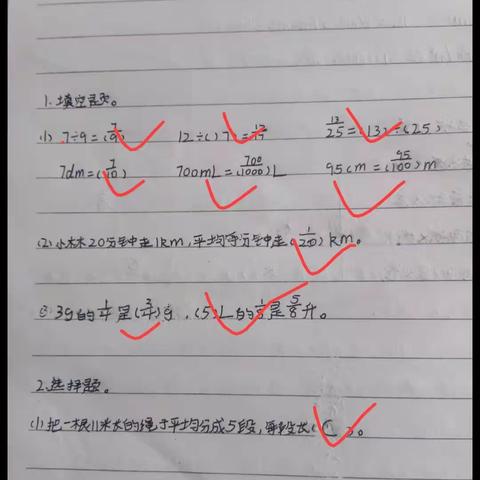 1.填空题。
(1) 7÷9=(7/9) 12÷( 7 )=12/17 12/25=(13)÷(25)
7dm=(7/10) 700mL=(700/1000)L 95cm=(95/100)m
(2)小林20分钟走1km,平均每分钟走(1/20)km。
3g的1/4是(3/4)g,(5)L的1/8是5/8升。
2.选择题。
(1)把一根11米长的绳子平均分成5段,每段长(C)。